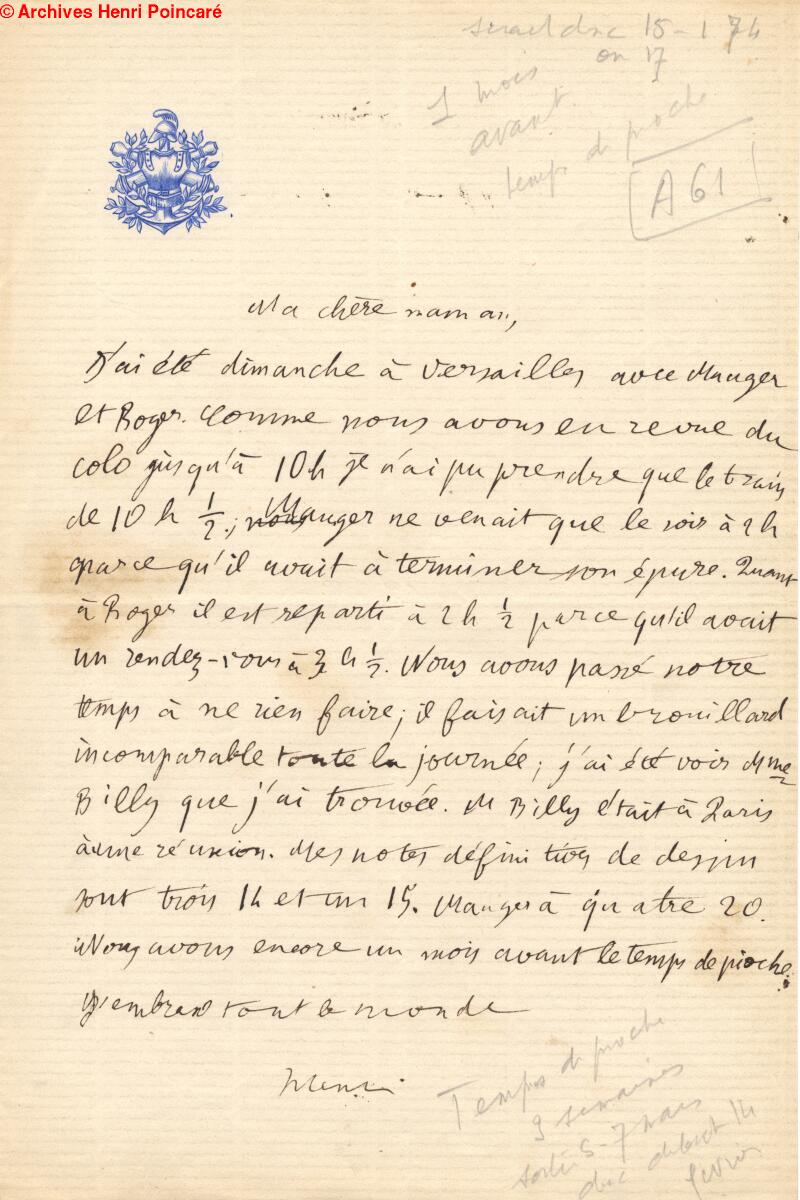 © Archives Henri Poincaré
serait donc 15 - 1 74
ou 17
1 mois
avant
temps de pioche
A 61
Ma chère maman,
J'ai été dimanche à Versailles avec Mauger
et Roger. Comme nous avons eu revue du
colo jusqu'à 10 h je n'ai pu prendre que le train
de 10 h 1/2, Mauger ne venait que le soir à 2 h
parce qu'il avait à terminer son épure. Quant
à Roger il est reparti à 2 h 1/2 parce qu'il avait
un rendez-vous à 3 h 1/2. Nous avons passé notre
temps à ne rien faire; il faisait un brouillard
incomparable toute la journée; j'ai été voir Mme
Billy que j'ai trouvée. M Billy était à Paris
à une réunion. Mes notes définitives de dessin
sont trois 14 et un 15. Mauger a quatre 20.
Nous avons encore un mois avant le temps de pioche.
J'embrasse tout le monde
Henri
Temps de pioche
3 semaines
sortie 5-7 mars
donc debut 14
fevrier